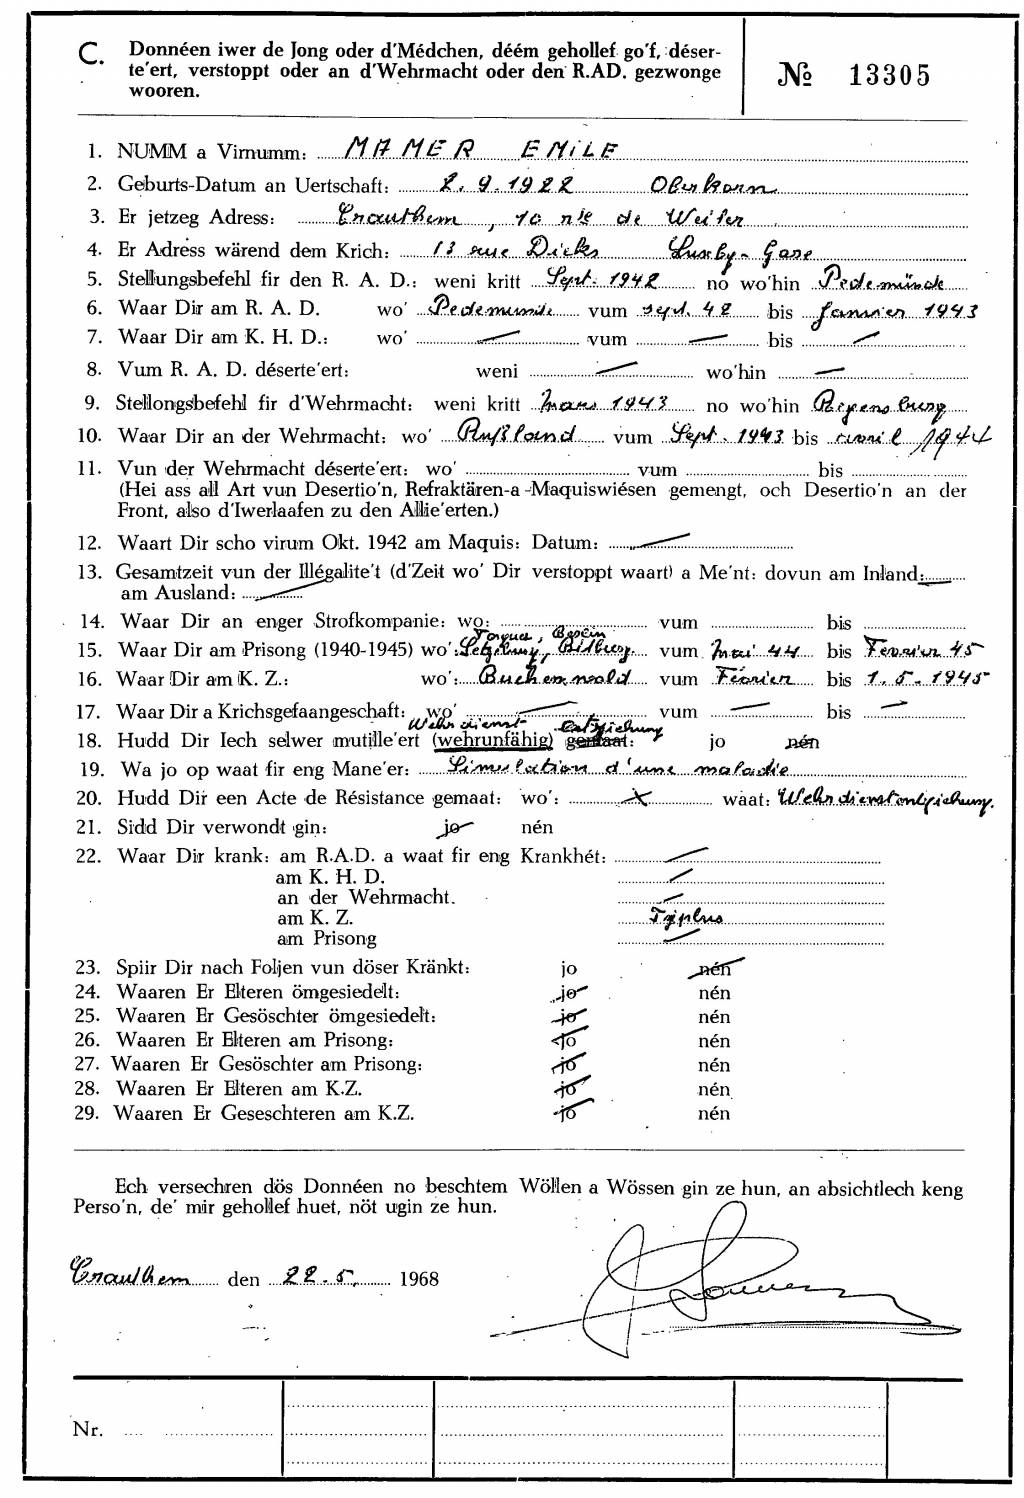 C. Donnéen iwer de Jong oder d'Médchen, déém gehollef go'f, déser-
te'ert, verstoppt oder an d'Wehrmacht oder den R.AD. gezwonge
wooren.
№ 13305
1. NUMM a Virnumm: MAMER EMILE
2. Geburts-Datum an Uertschaft: 2.9.1922 Oberkorn
3. Er jetzeg Adress: Crauthem, 10 rue de Weiler
4. Er Adress wärend dem Krich: 13 rue Dicks Luxbg-Gare
5. Stellungsbefehl fir den R. A. D.: weni kritt Sept. 1942 no wo'hin Pedemünde
6. Waar Dir am R. A. D. wo' Pedemünde vum sept. 42 bis Janvier 1943
7. Waar Dir am K. H. D.: wo' — vum — bis —
8. Vum R. A. D. déserte'ert: weni — wo'hin —
9. Stellongsbefehl fir d'Wehrmacht: weni kritt Mars 1943 no wo'hin Regensburg
10. Waar Dir an der Wehrmacht: wo' Rußland vum Sept. 1943 bis avril 1944
11. Vun der Wehrmacht déserte'ert: wo' vum bis
(Hei ass all Art vun Desertio'n, Refraktären-a-Maquiswiésen gemengt, och Desertio'n an der
Front, also d'Iwerlaafen zu den Allie'erten.)
12. Waart Dir scho virum Okt. 1942 am Maquis: Datum: —
13. Gesamtzeit vun der Illégalite't (d'Zeit wo' Dir verstoppt waart) a Me'nt: dovun am Inland: —
am Ausland: —
14. Waar Dir an enger Strofkompanie: wo: vum bis
Torgau, Berlin
15. Waar Dir am Prisong (1940-1945) wo': vum Mai 44 bis Fevrier 45
16. Waar Dir am K. Z.: wo': Buchenwald vum Février bis 1.5.1945
17. Waar Dir a Krichsgefaangeschaft: wo' — vum — bis —
Wehrdienst- Entziehung
18. Hudd Dir Iech selwer mutille'ert (wehrunfähig) gemaat: jo nén
19. Wa jo op waat fir eng Mane'er: Simulation d'une maladie
20. Hudd Dir een Acte de Résistance gemaat: wo': x waat: Wehrdienstentziehung.
21. Sidd Dir verwondt gin: jo nén
22. Waar Dir krank: am R.A.D. a waat fir eng Krankhét: —
am K. H. D. —
an der Wehrmacht. —
am K. Z. Typhus
am Prisong —
23. Spiir Dir nach Foljen vun döser Kränkt: jo nén
24. Waaren Er Elteren ömgesiedelt: jo nén
25. Waaren Er Gesöschter ömgesiedelt: jo nén
26. Waaren Er Elteren am Prisong: jo nén
27. Waaren Er Gesöschter am Prisong: jo nén
28. Waaren Er Elteren am K.Z. jo nén
29. Waaren Er Geseschteren am K.Z. jo nén
Ech versechren dös Donnéen no beschtem Wöllen a Wössen gin ze hun, an absichtlech keng
Perso'n, de' mir gehollef huet, nöt ugin ze hun.
Crauthem den 22.5. 1968
Nr.